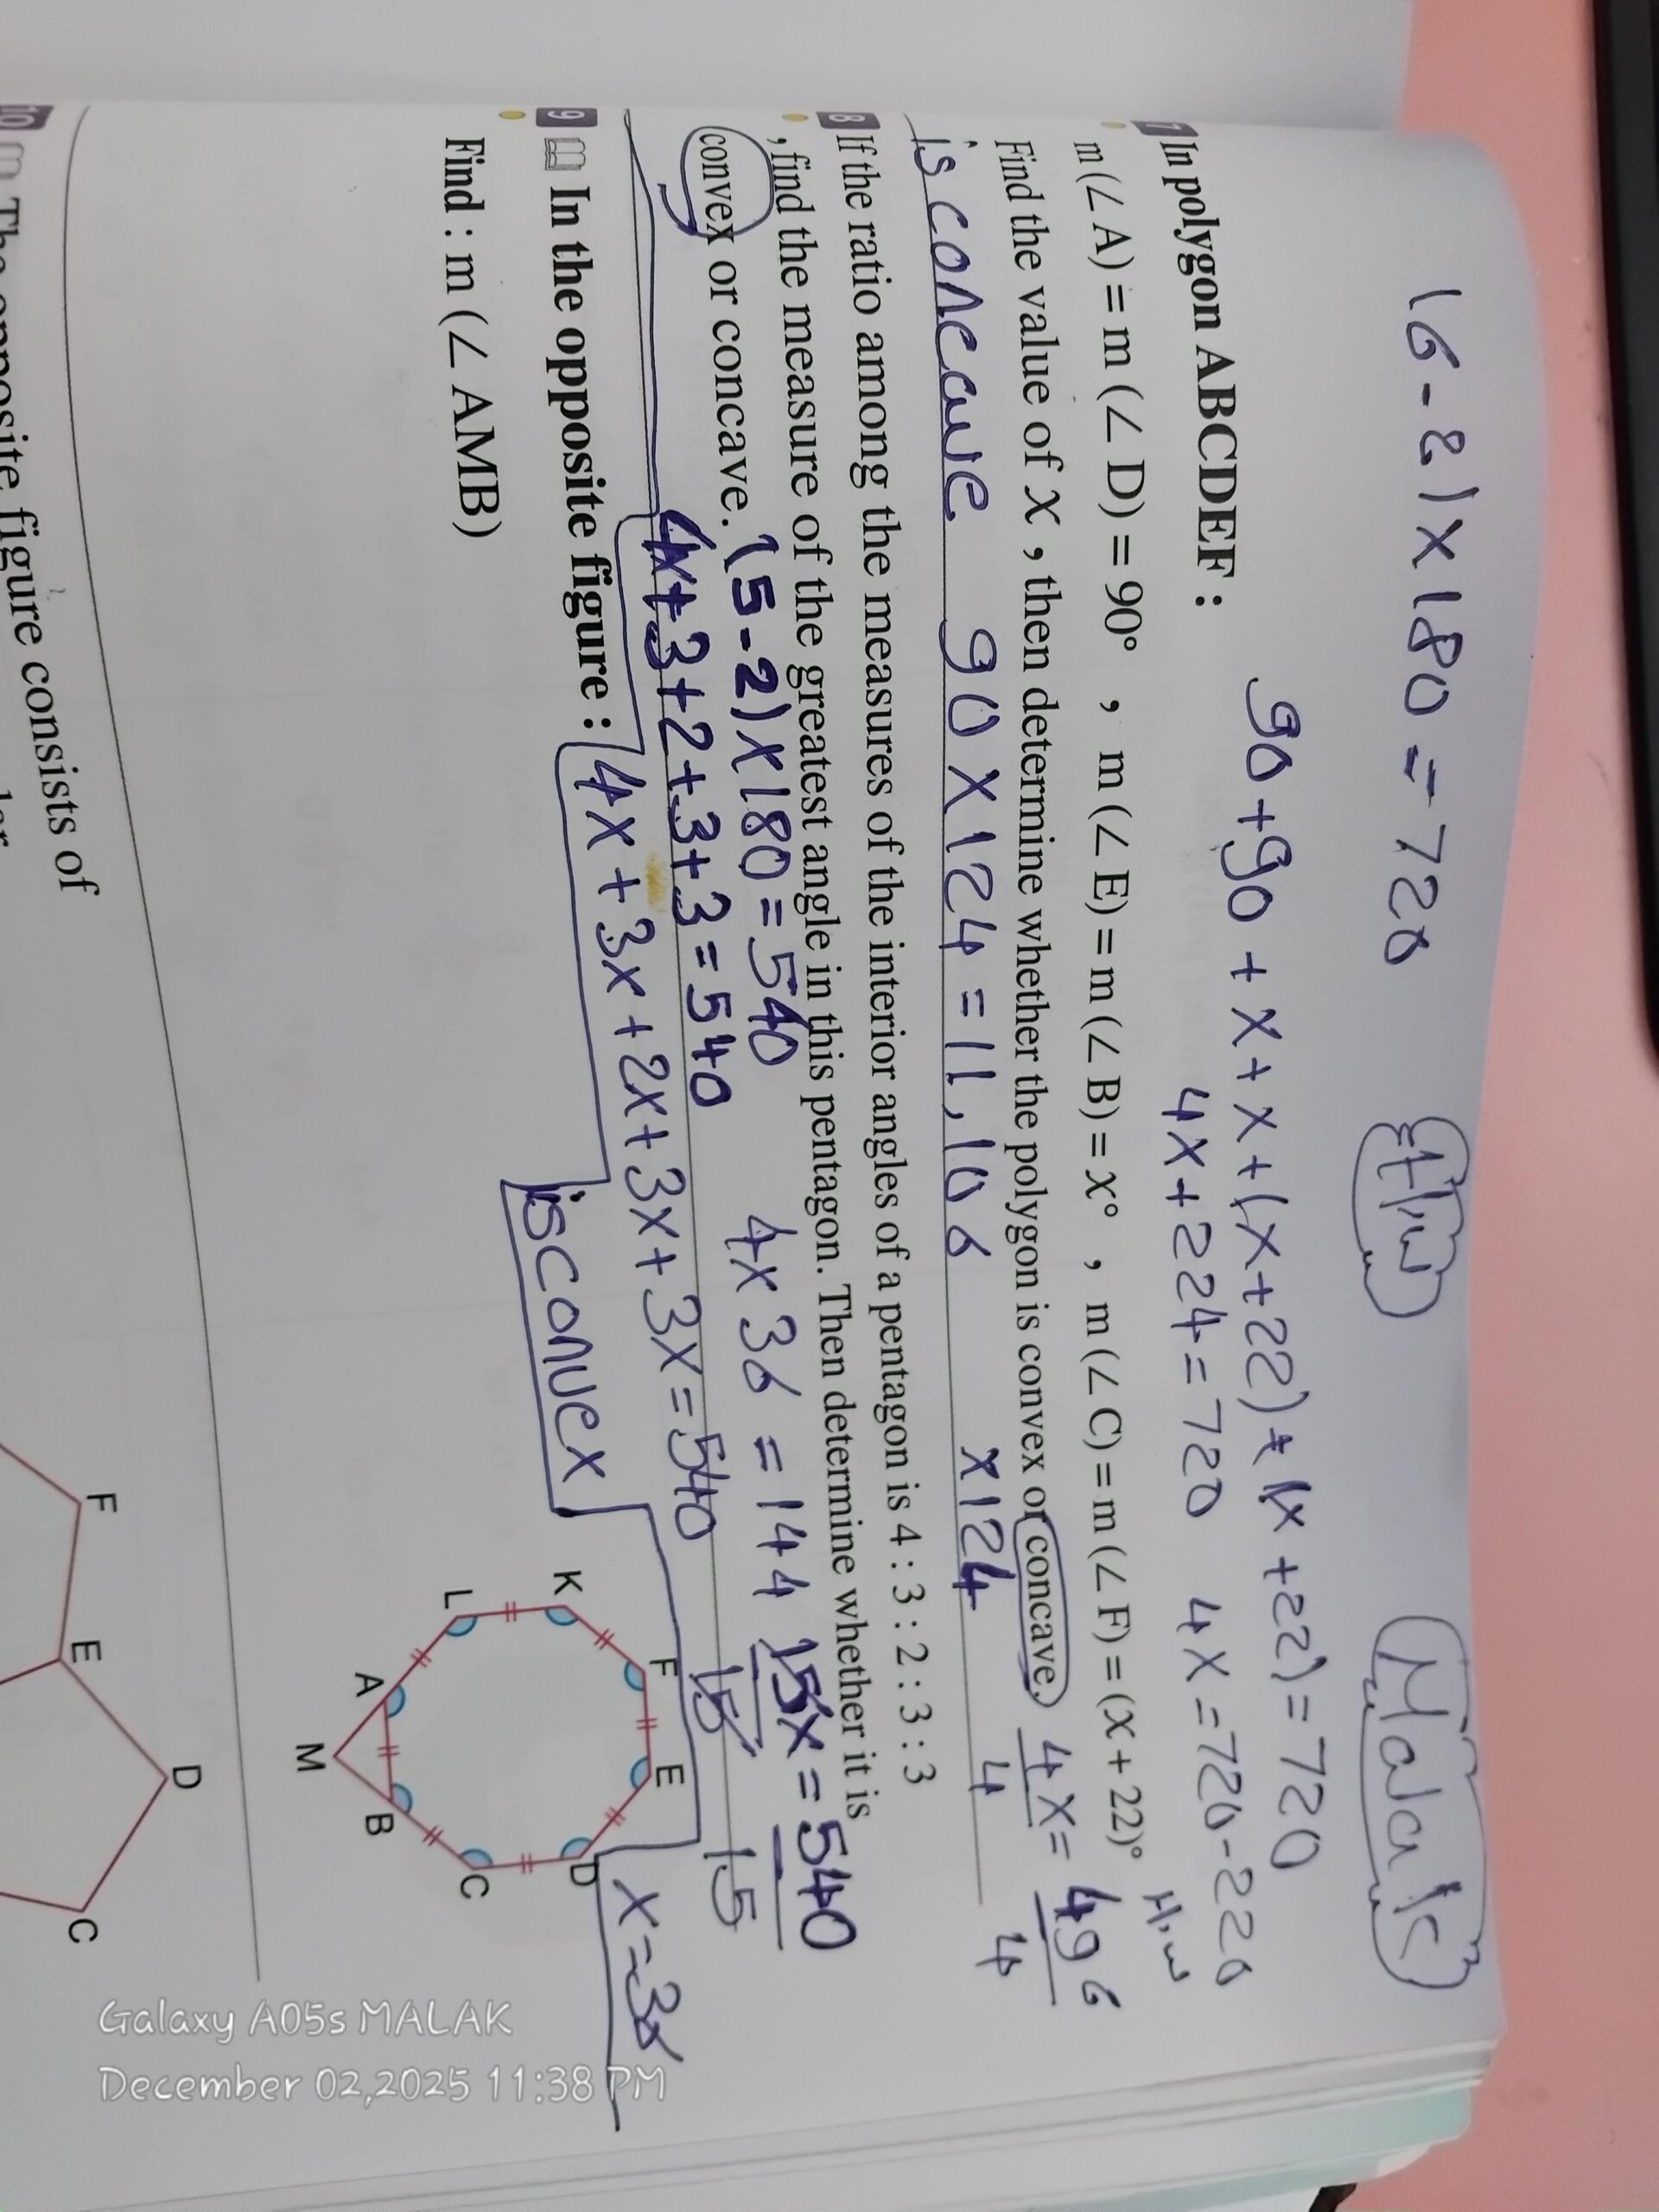 (6-2)x180=720
H.w
Malak
90+90+x+x+(x+22)+(x+22)=720
4x+224=720 4x=720-220
7 In polygon ABCDEF :
H.w
m (∠ A) = m (∠ D) = 90° , m (∠ E) = m (∠ B) = x° , m (∠ C) = m (∠ F) = (x + 22)°
Find the value of x , then determine whether the polygon is convex or concave.
4x= 496
4 4
is concave 90x124=11,106 x124
8 If the ratio among the measures of the interior angles of a pentagon is 4 : 3 : 2 : 3 : 3
, find the measure of the greatest angle in this pentagon. Then determine whether it is
convex or concave. (5-2)x180=540 4x36=144 15x=540
15 15
4x+3+2+3+3=540
9 In the opposite figure : 4x+3x+2x+3x+3x=540
x=36
is convex
Find : m (∠ AMB)
K
F
E
D
L
C
A
B
M
10 The opposite figure consists of
F
E
D
C
Galaxy A05s MALAK
December 02,2025 11:38 PM